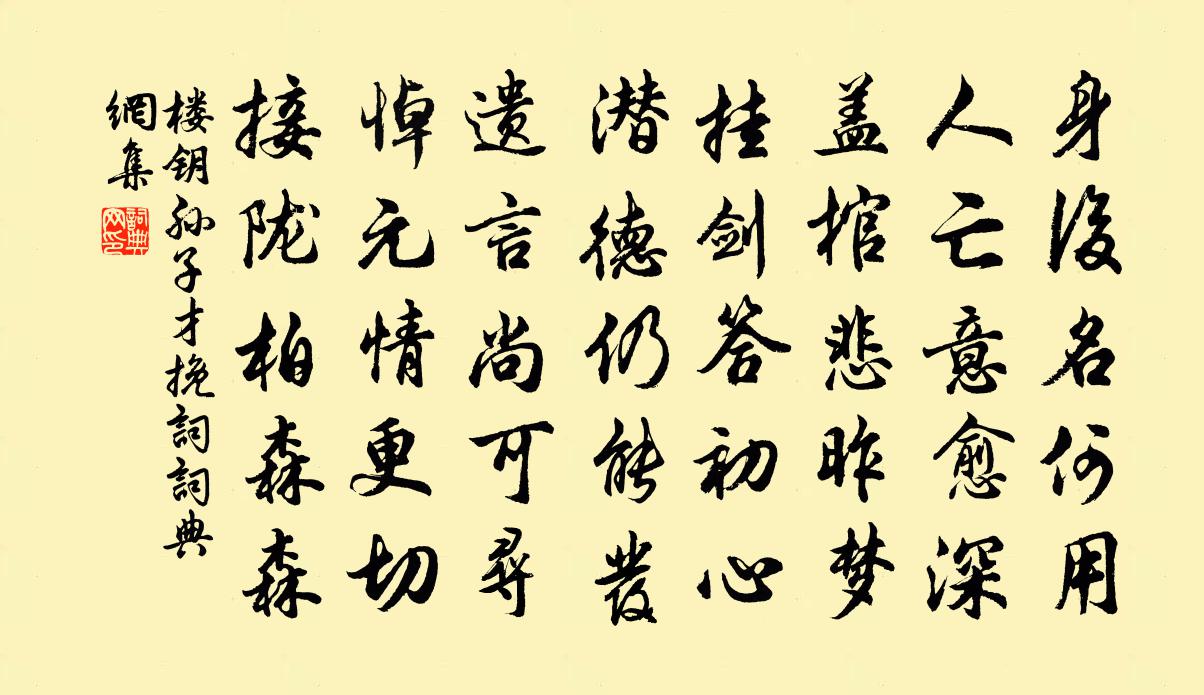 身後名何用
人亡意愈深
盖棺悲昨梦
挂剑答初心
潜德仍能發
遗言尚可尋
悼亢情更切
接陇柏森森
楼钥孙子才挽詞詞典
網集
詞典
网印